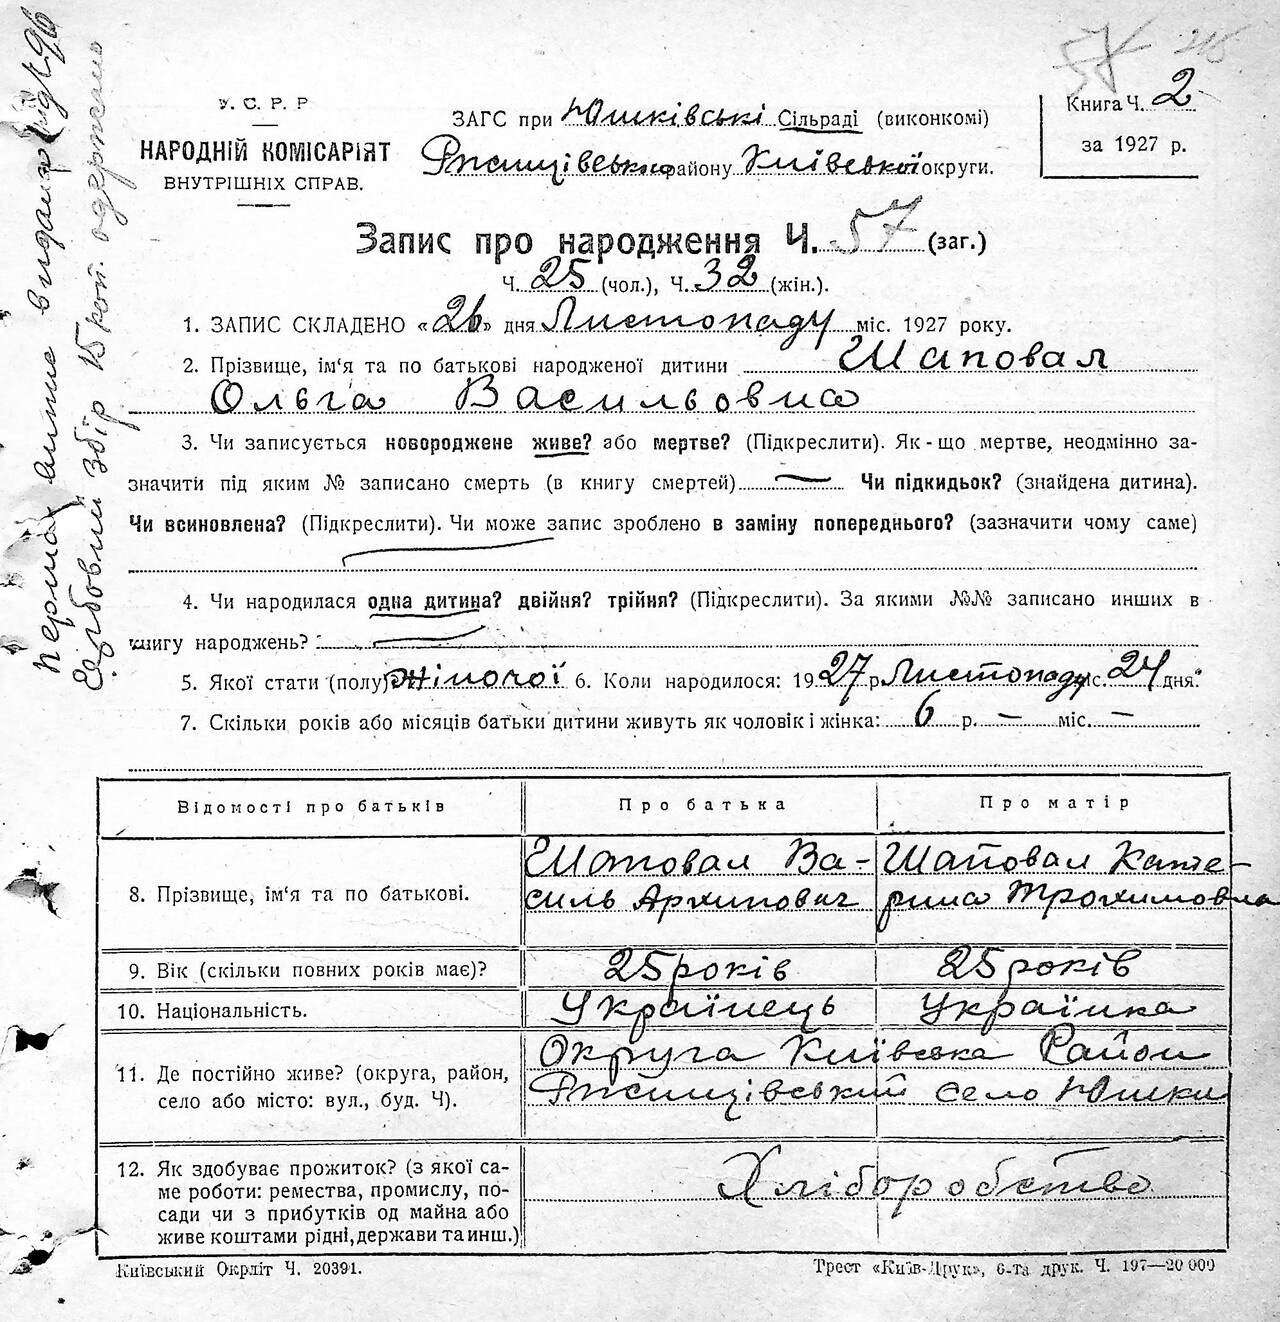 57 215
У. С. Р. Р
НАРОДНІЙ КОМІСАРІЯТ
ВНУТРІШНІХ СПРАВ.
ЗАГС при Юшківські Сільраді (виконкомі)
Ржищівського району Київської округи.
Книга Ч. 2
за 1927 р.
Запис про народження Ч. 57 (заг.)
Ч. 25 (чол.), Ч. 32 (жін.).
1. ЗАПИС СКЛАДЕНО «26» дня Листопаду міс. 1927 року.
2. Прізвище, ім'я та по батькові народженої дитини Шаповал
Ольга Васильовна
3. Чи записується новороджене живе? або мертве? (Підкреслити). Як-що мертве, неодмінно за-
значити під яким № записано смерть (в книгу смертей) — Чи підкидьок? (знайдена дитина).
Чи всиновлена? (Підкреслити). Чи може запис зроблено в заміну попереднього? (зазначити чому саме)
4. Чи народилася одна дитина? двійня? трійня? (Підкреслити). За якими №№ записано инших в
книгу народжень?
5. Якої стати (полу) жіночої 6. Коли народилося: 1927 р. Листопаду міс. 24 дня.
7. Скільки років або місяців батьки дитини живуть як чоловік і жінка: 6 р. — міс. —
Відомості про батьків Про батька Про матір
8. Прізвище, ім'я та по батькові.
Шаповал Ва-
силь Архипович
Шаповал Кате-
рина Трохимовна
9. Вік (скільки повних років має)? 25 років 25 років
10. Національність. Українець Українка
11. Де постійно живе? (округа, район,
село або місто: вул., буд. Ч).
Округа Київська Район
Ржищівський село Юшки
12. Як здобуває прожиток? (з якої са-
ме роботи: ремества, промислу, по-
сади чи з прибутків од майна або
живе коштами рідні, держави та инш.)
Хліборобство
Київський Окрліт Ч. 20391.
Трест «Київ-Друк», 6-та друк. Ч. 197—20 000
витяг видано
збір 15 коп. одержано